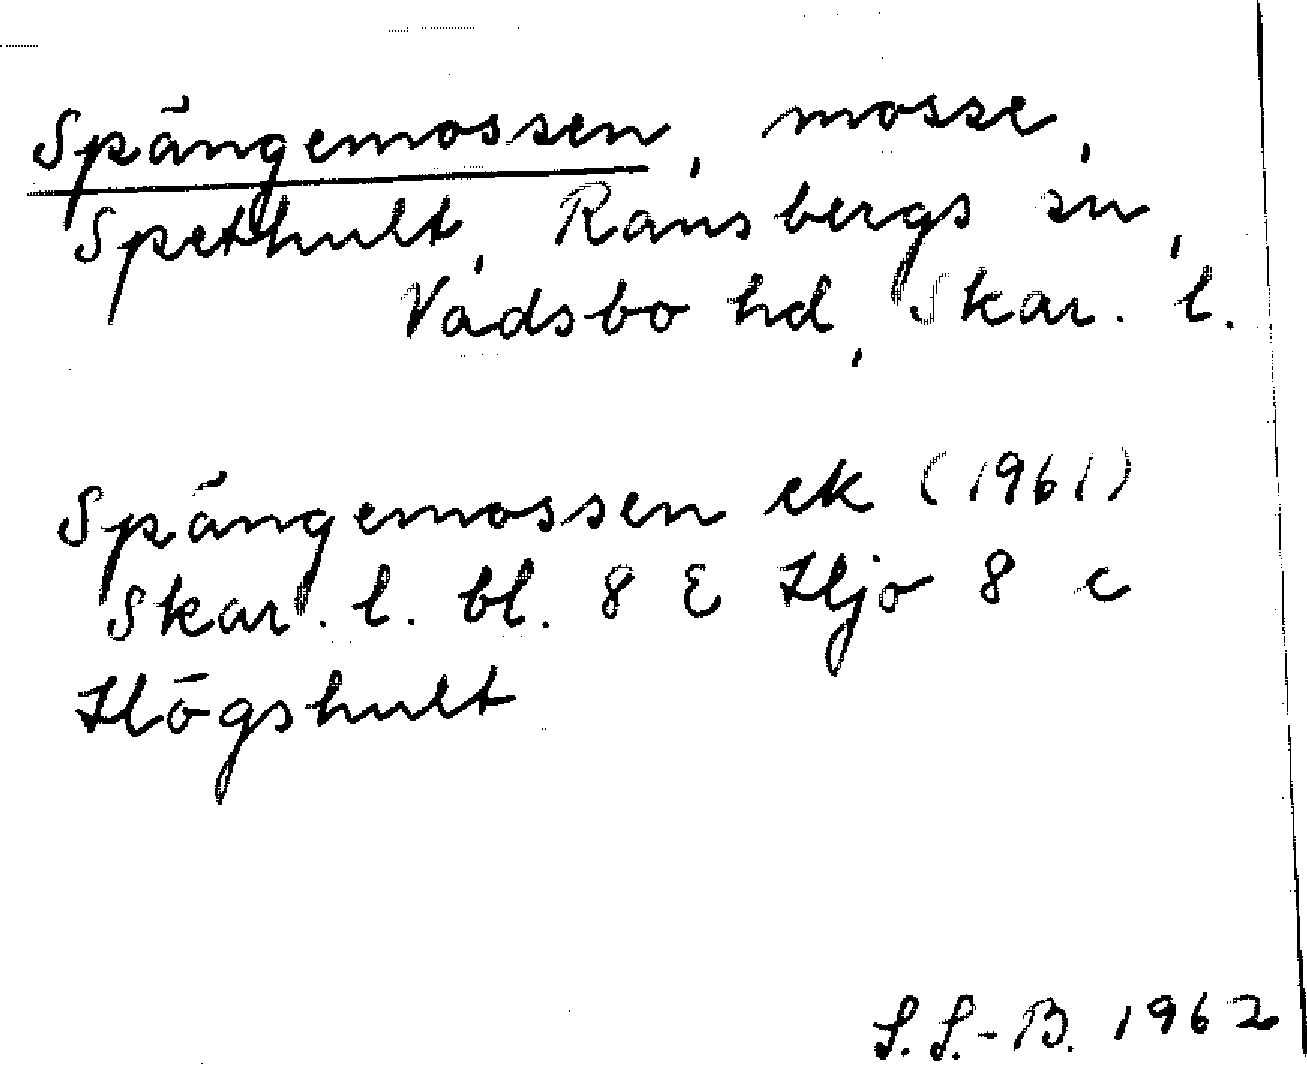 Spängemossen, mosse,
Spethult, Ransbergs sn,
Vadsbo hd, Skar. l.
Spängemossen ek (1961)
Skar. l. bl. 8 E Hjo 8 c
Högshult
S. S.-B. 1962